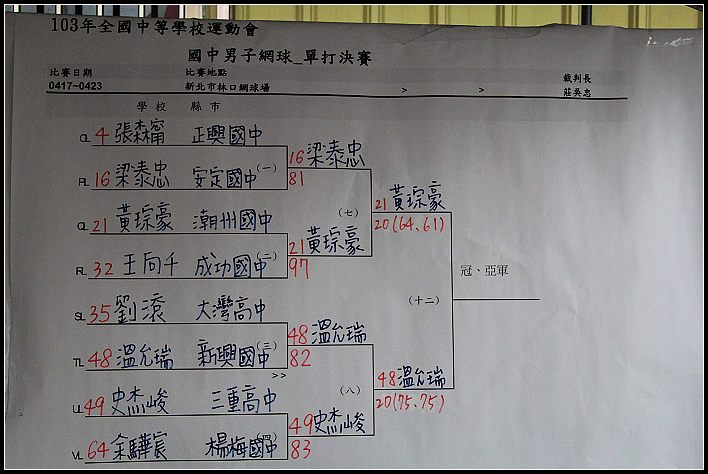 103年全國中等學校運動會
國中男子網球_單打決賽
比賽日期 比賽地點 裁判長
0417~0423 新北市林口網球場 > > 莊吳忠
學校 縣市
QL 4 張森甯 正興國中
RL 16 梁泰忠 安定國中 (一)
16 梁泰忠
81
QL 21 黃琮豪 潮州國中
RL 32 王向千 成功國中 (二)
21 黃琮豪
97
(七)
21 黃琮豪
20(64.61)
SL 35 劉滾 大灣高中
TL 48 溫允瑞 新興國中 (三)
>>
48 溫允瑞
82
UL 49 史杰峻 三重高中
VL 64 余驊宸 楊梅國中 (四)
49 史杰峻
83
(八)
48 溫允瑞
20(75.75)
(十二)
冠、亞軍